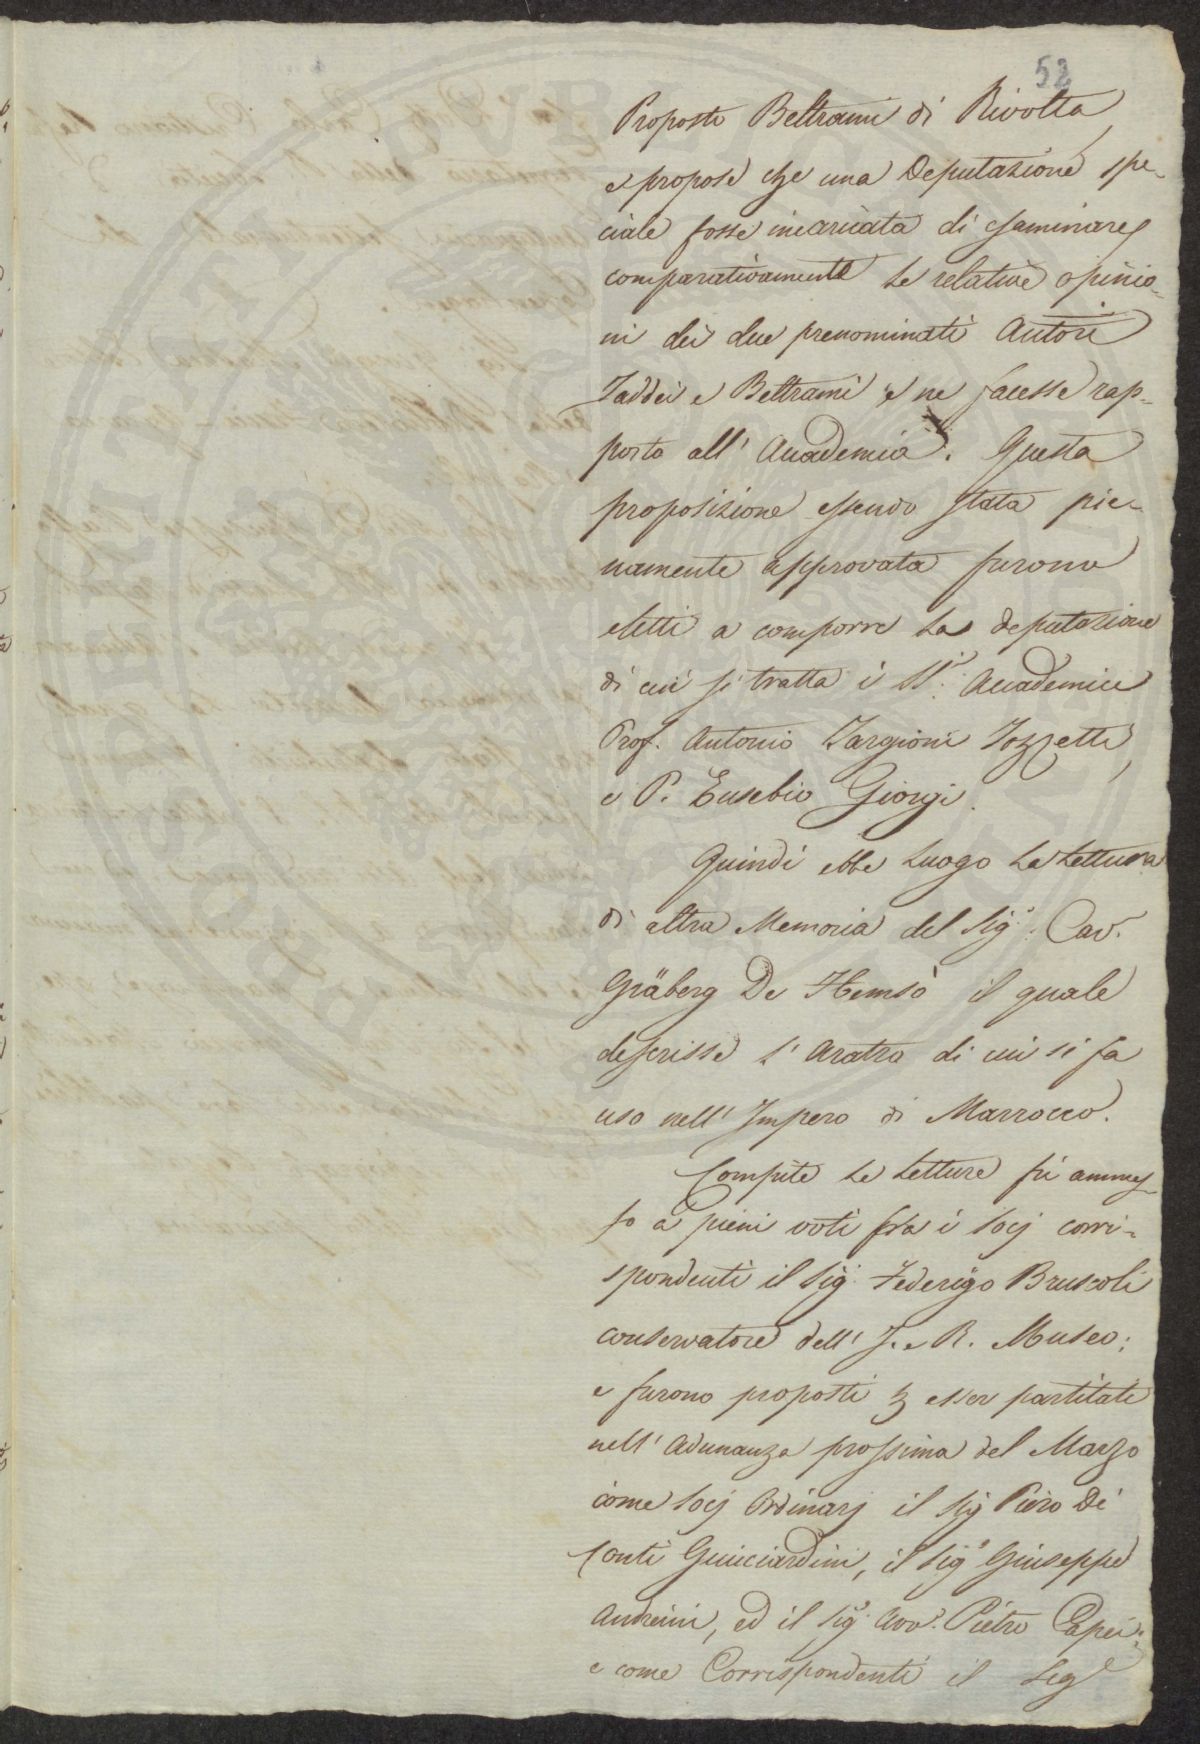 52
Proposto Beltrami di Rivolta,
e propose che una Deputazione spe-
ciale fosse incaricata di esaminare
comparativamente le relative opinio-
ni dei due prenominati Autori
Taddei e Beltrami e ne facesse rap-
porto all' Accademia. Questa
proposizione essendo stata pie-
namente approvata furono
eletti a comporre la deputazione
di cui si tratta i SS.ri Accademici
Prof. Antonio Targioni Tozzetti,
e P. Eusebio Giorgi.
Quindi ebbe luogo la lettura
di altra Memoria del Sig.r Cav.
Gräberg De Hemsò il quale
descrisse l' Aratro di cui si fa
uso nell' Impero di Marrocco.
Compite le letture fù ammes-
so a pieni voti fra i Socj corri-
spondenti il Sig.r Federigo Bruscoli
conservatore dell' I. e R. Museo;
e furono proposti p esser partitati
nell' Adunanza prossima del Marzo
come Socj Ordinarj il Sig Piero De'
Conti Guicciardini, il Sig.r Giuseppe
Andreini, ed il Sig.r Avv.o Pietro Capei;
e come Corrispondenti il Sig.r